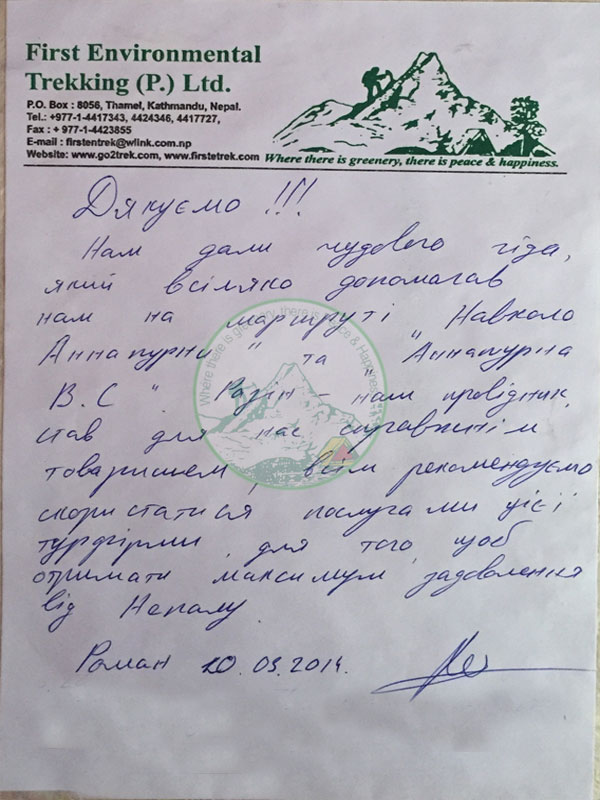 First Environmental
Trekking (P.) Ltd.
P.O. Box : 8056, Thamel, Kathmandu, Nepal.
Tel.: +977-1-4417343, 4424346, 4417727,
Fax : + 977-1-4423855
E-mail : firstentrek@wlink.com.np
Website: www.go2trek.com, www.firstetrek.com
Where there is greenery, there is peace & happiness.
Дякуємо !!!
Нам дали чудового гіда,
який всіляко допомагав
нам на маршруті „Навколо
Аннапурни" та „Аннапурна
B.C". Розін - нам провідник,
став для нас справжнім
товаришем, всім рекомендуємо
скористатися послугами цієї
турфірми, для того, щоб
отримати максимум задоволення
від Непалу.
Роман 20.03.2014.
Where there is greenery, there is peace & Happiness